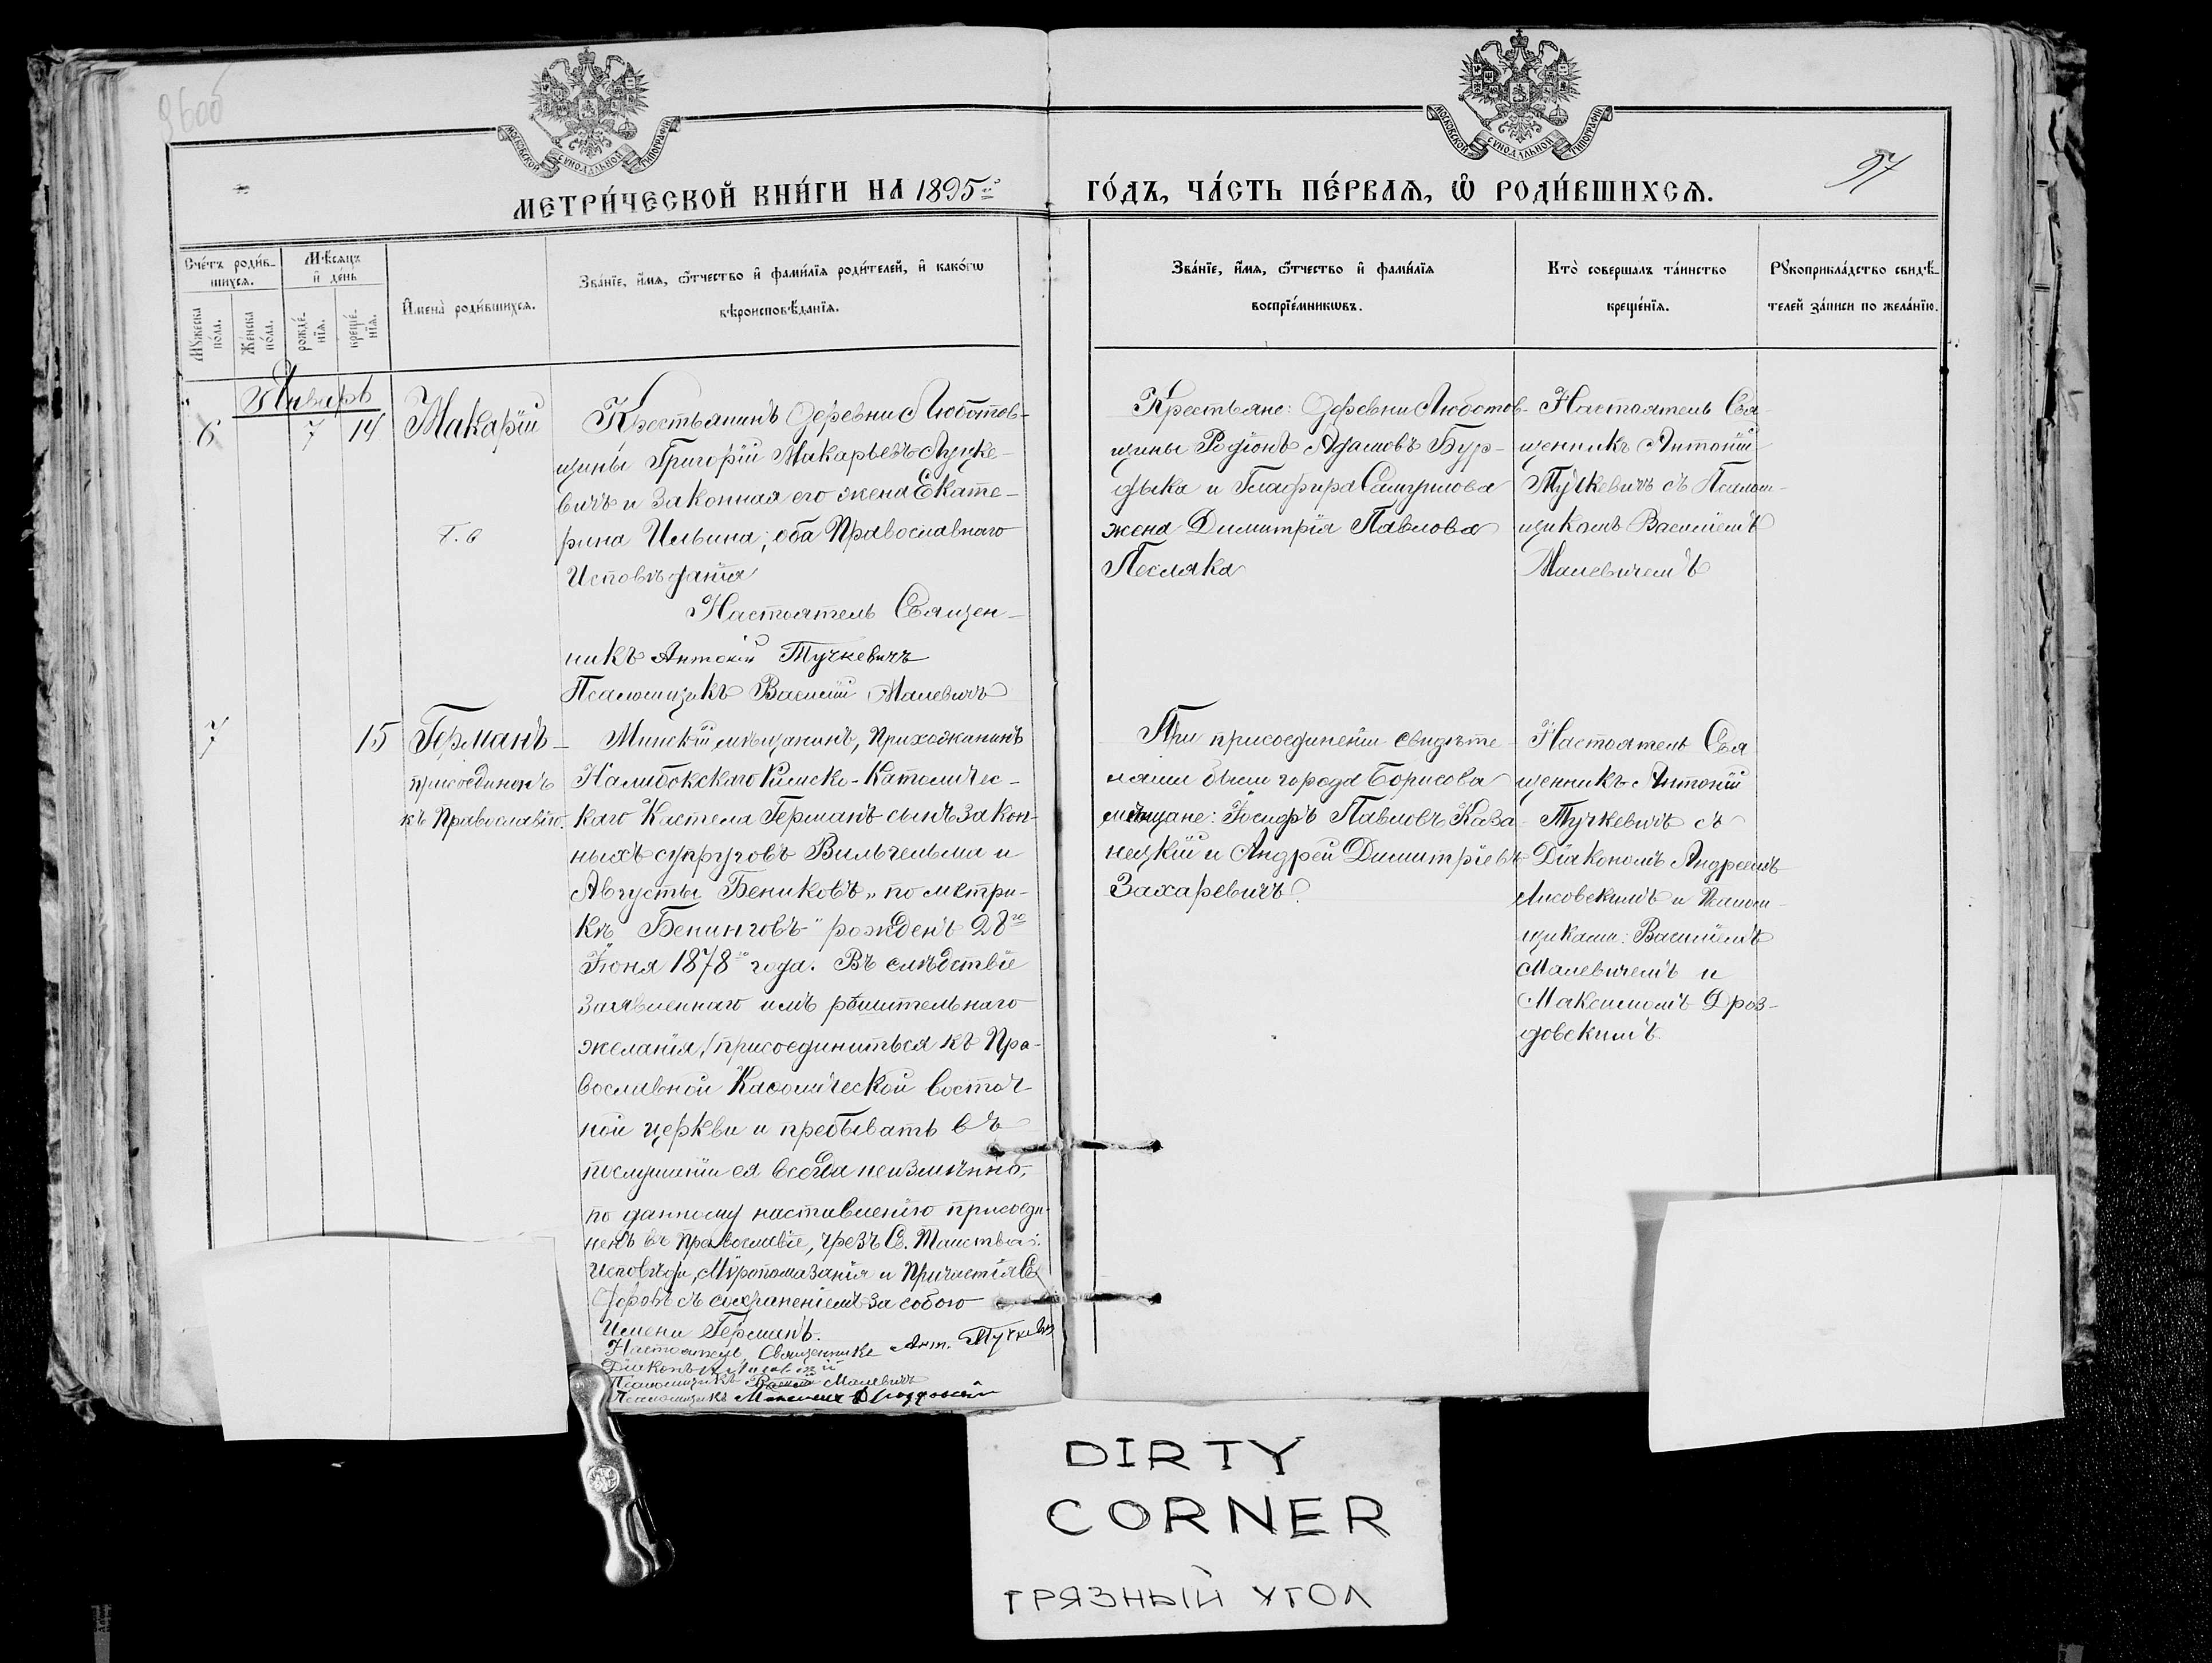 96об
МОСКОВСКОЙ СѴНОДАЛЬНОЙ ТИПОГРАФІИ
МОСКОВСКОЙ СѴНОДАЛЬНОЙ ТИПОГРАФІИ
97
МЕТРИ́ЧЕСКОЙ КНИ́ГИ НА 1895й
ГО́ДЪ, ЧА́СТЬ ПЕ́РВАѦ, Ѽ РОДИ́ВШИХСѦ.
Сче́тъ роди́в-
шихсѧ.
Мѣсяцъ
и҆ де́нь
Мꙋжеска по́ла.
Же́нска по́ла.
рожде́-
нїѧ.
креще́-
нїѧ.
И҆мена̀ роди́вшихсѧ.
Зва́нїе, и҆́мѧ, ѻ҆́тчество и҆ фами́лїѧ роди́телей, и҆ како́гѡ
вѣроисповѣ́данїѧ.
Зва́нїе, и҆́мѧ, ѻ҆́тчество и҆ фами́лїѧ
воспрїе́мникѡвъ.
Кто̀ соверша́лъ та́инство
креще́нїѧ.
Рꙋкоприкла́дство свидѣ́-
телей за́писи по жела́нїю.
Январь
6
7
14
Макарій
Г. 6
Крестьянинъ деревни Люботов-
щины Григорій Макарьевъ Луцке-
вичъ и законная его жена Екате-
рина Ильина; оба Православнаго
Исповѣданія
Настоятель Священ-
никъ Антоній Тучкевичъ
Псаломщикъ Василій Малевичъ
Крестьяне: деревни Люботов-
щины Родіонъ Адамовъ Бур-
дыка и Глафира Самуилова
жена Димитрія Павлова
Песляка
Настоятель Свя-
щенникъ Антоній
Тучкевичъ съ Псалом-
щикомъ Василіемъ
Малевичемъ
7
15
Германъ-
присоединенъ
къ Православію.
Минскій мѣщанинъ, прихожанинъ
Налибокскаго Римско-Католичес-
каго Костела Германъ сынъ закон-
ныхъ супруговъ Вильгельма и
Августы Бениковъ, „по метри-
кѣ Бенинговъ" рожденъ 28го
Іюня 1878го года. Въ слѣдствіе
заявленнаго имъ рѣшительнаго
желанія, присоединиться къ Пра-
вославной Каѳолической восточ-
ной церкви и пребывать въ
послушаніи ея всегда неизмѣнно,
по данному наставленію присоеди-
ненъ въ православіе, чрезъ Св. Таинства:
Исповѣди, Мѵропомазанія и Причастія Св.
Даровъ съ сохраненіемъ за собою
Имени Германъ.
Настоятель, Священникъ Ант. Тучкевич
Діаконъ А Лисовскій
Псаломщикъ Василій Малевичъ
Псаломщикъ Максимъ Дроздовскій
При присоединеніи свидѣте-
лями были города Борисова
мѣщане: Іосифъ Павловъ Каза-
нецкій и Андрей Димитріевъ
Захаревичъ.
Настоятель Свя
щенникъ Антоній
Тучкевичъ съ
Діакономъ Андреемъ
Лисовскимъ и Псалом-
щиками: Василіемъ
Малевичемъ и
Максимомъ Дроз-
довскимъ.
DIRTY
CORNER
ГРЯЗНЫЙ УГОЛ